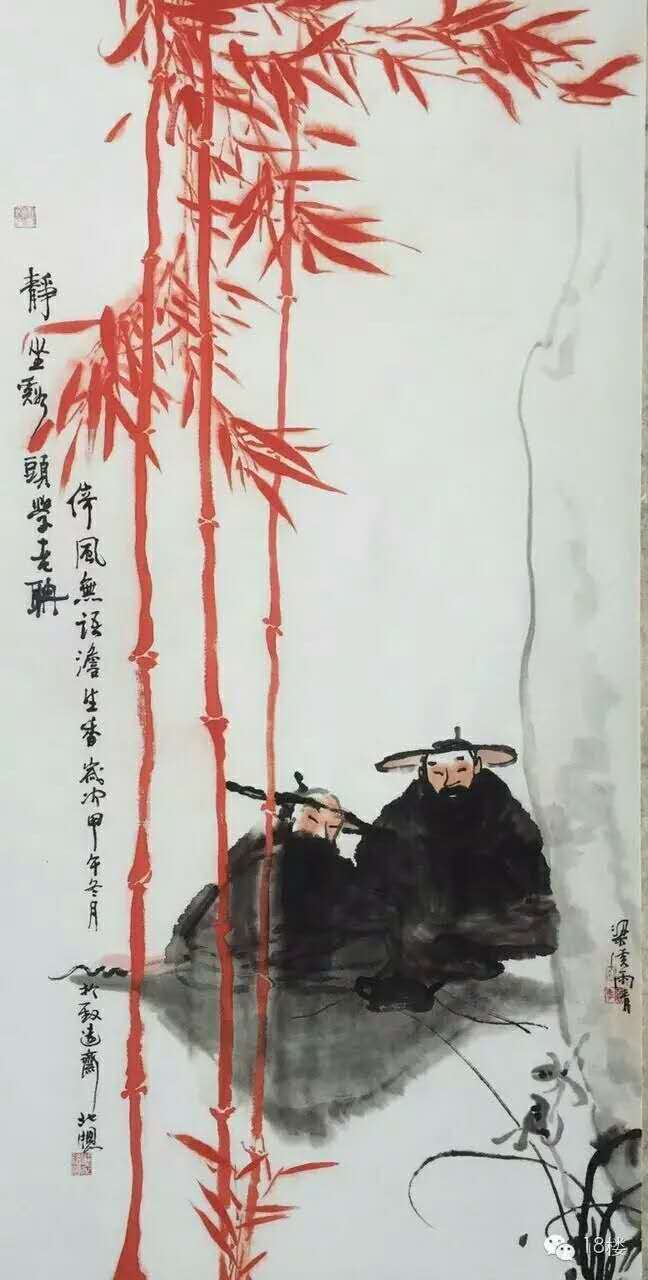 靜坐谿頭學老聃
倚風無語澹生香歲次甲午冬月
於致遠齋北
梁溪雨青
18楼